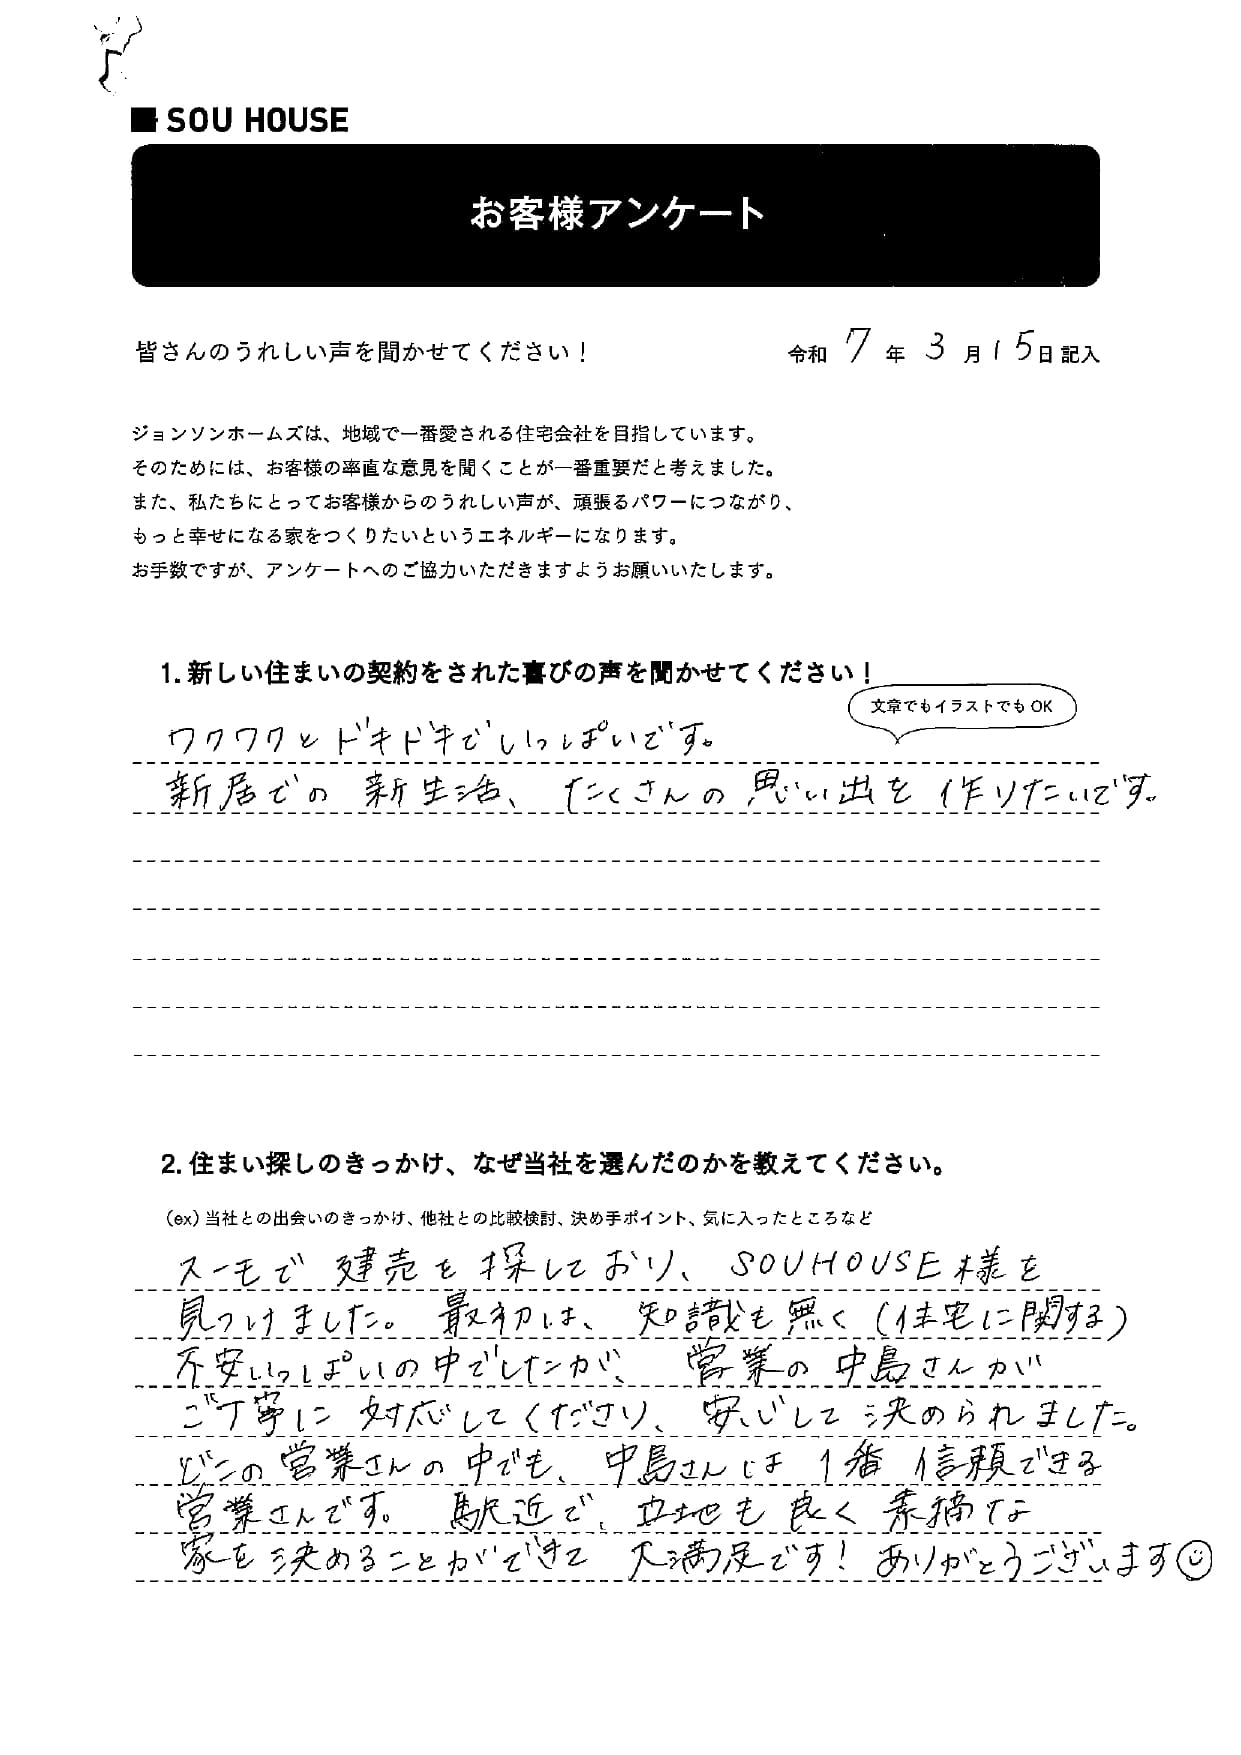 SOU HOUSE
お客様アンケート
皆さんのうれしい声を聞かせてください！
令和 7 年 3 月 15日 記入
ジョンソンホームズは、地域で一番愛される住宅会社を目指しています。
そのためには、お客様の率直な意見を聞くことが一番重要だと考えました。
また、私たちにとってお客様からのうれしい声が、頑張るパワーにつながり、
もっと幸せになる家をつくりたいというエネルギーになります。
お手数ですが、アンケートへのご協力いただきますようお願いいたします。
1. 新しい住まいの契約をされた喜びの声を聞かせてください！
文章でもイラストでもOK
ワクワクとドキドキでいっぱいです。
新居での 新生活、たくさんの思い出を作りたいです。
2. 住まい探しのきっかけ、なぜ当社を選んだのかを教えてください。
（ex）当社との出会いのきっかけ、他社との比較検討、決め手ポイント、気に入ったところなど
スーモで 建売を探しており、SOUHOUSE様を
見つけました。最初は、知識も無く（住宅に関する）
不安いっぱいの中でしたが、営業の中島さんが
ご丁寧に対応してくださり、安心して決められました。
どこの営業さんの中でも、中島さんは1番信頼できる
営業さんです。駅近で、立地も良く素摘な
家を決めることができて 大満足です！ありがとうございます☺